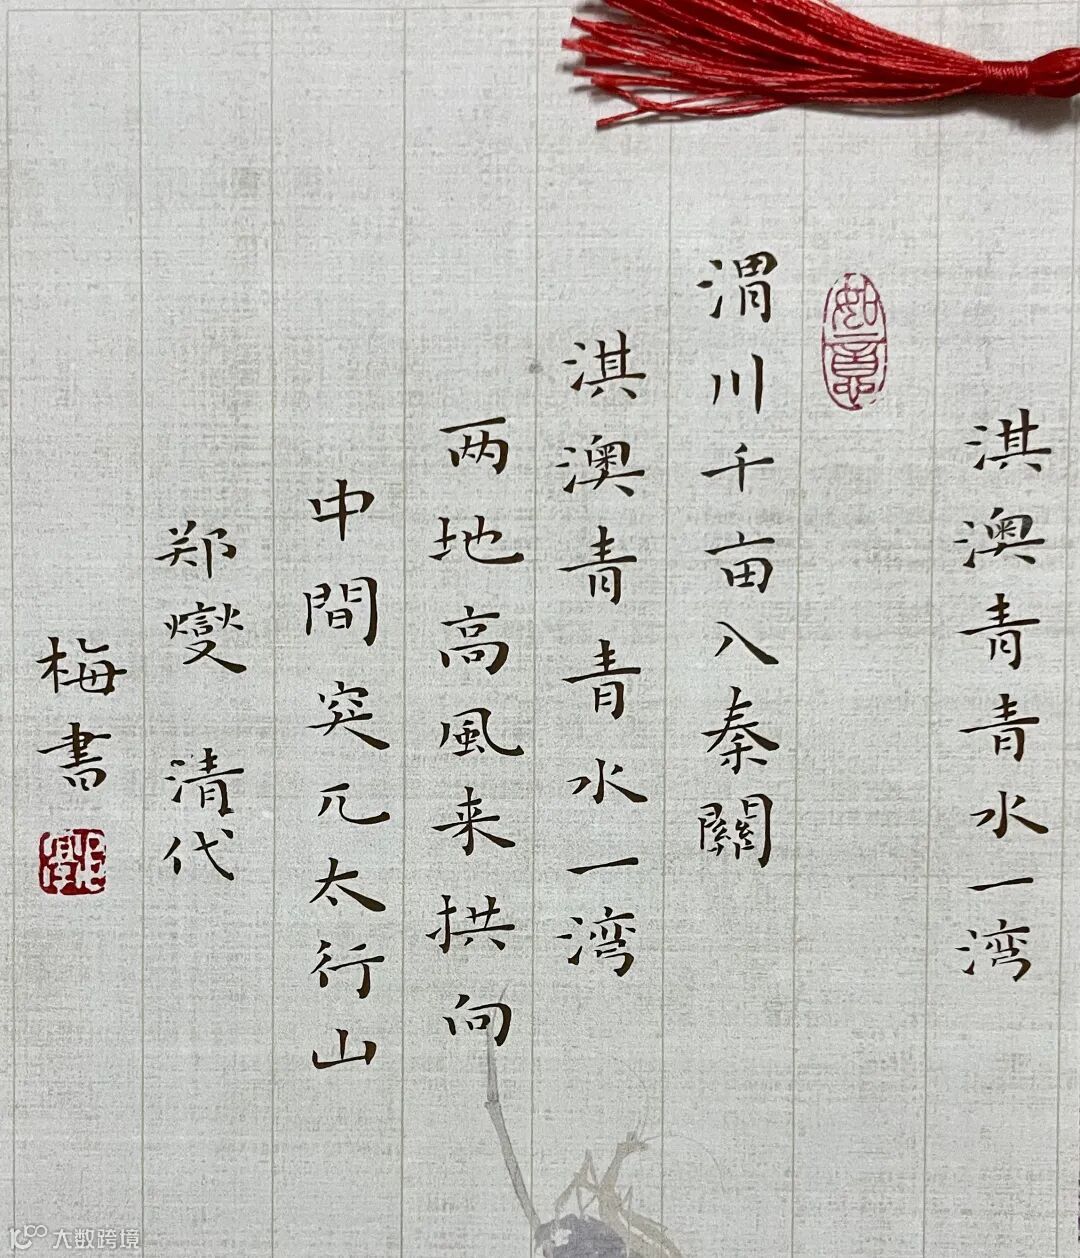 淇澳青青水一湾
如意
渭川千亩入秦關
淇澳青青水一湾
两地高風来拱向
中間突兀太行山
郑燮 清代
梅書
大数跨境